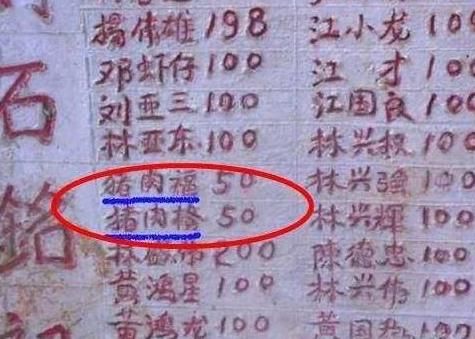 石銘
楊伟雄 198 江小龙 100
邓虾仔 100 江 才 10
刘亚三 100 江国良 100
林亚东 100 林兴权 100
猪肉福 50 林兴強 100
猪肉 50 林兴輝 100
200 陳德忠 100
黃鸿星 100 林兴伟 100
黃鸿龙 100 黄国 100